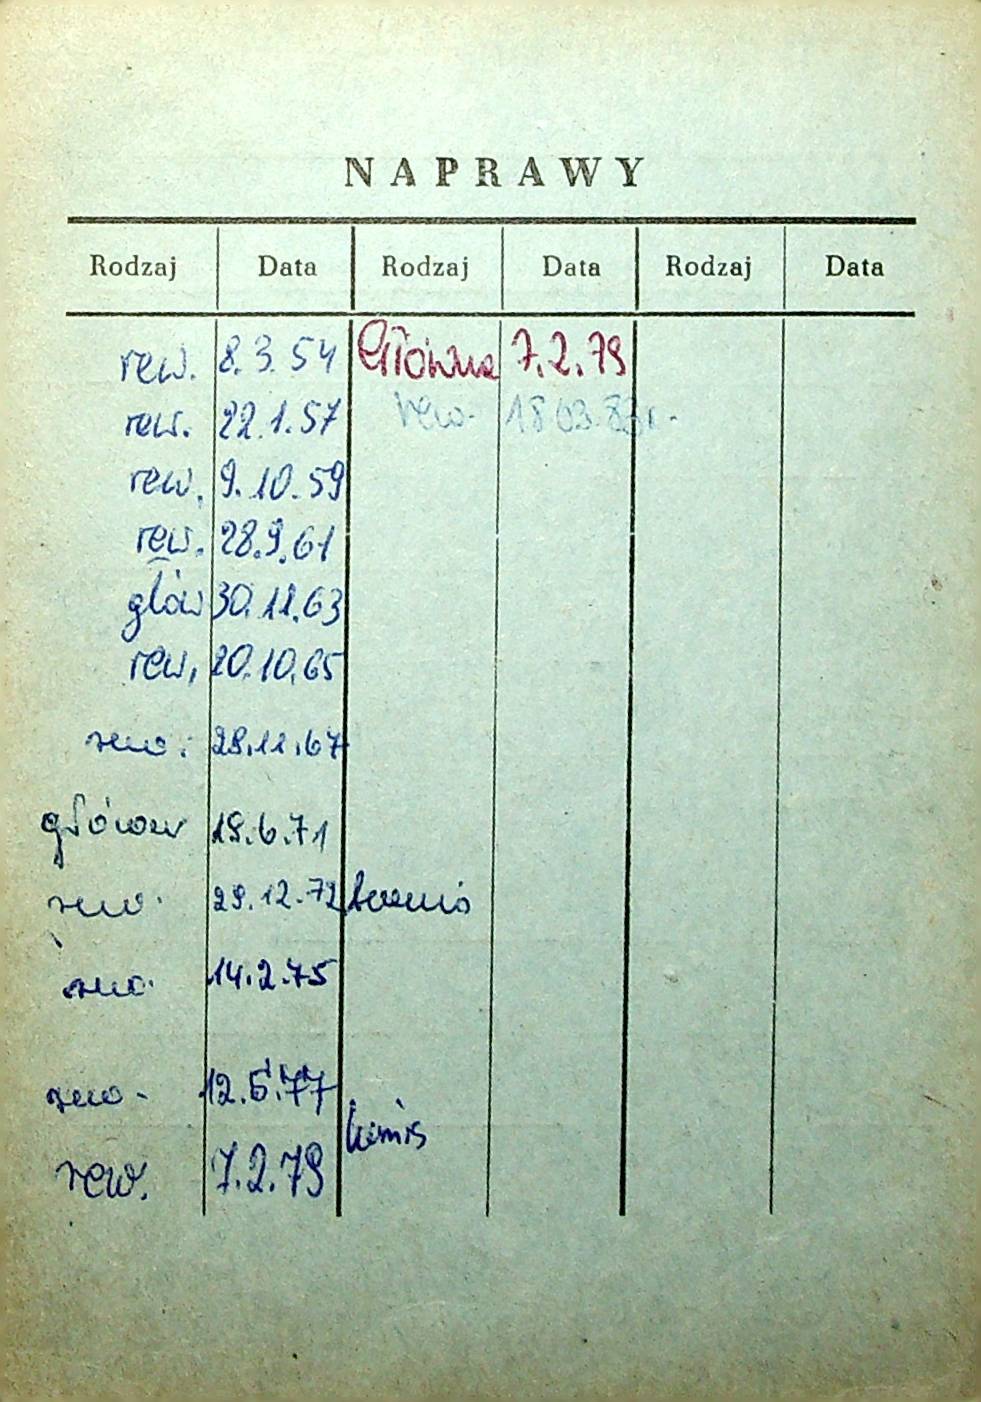 NAPRAWY
Rodzaj Data Rodzaj Data Rodzaj Data
rew. 8.3.54 Główna 7.2.79
rew. 22.1.57 rew. 18 03.83r.
rew. 9.10.59
rew. 28.9.61
głów 30.11.63
rew. 20.10.65
rew. 28.11.67
główn 19.6.71
rew. 29.12.72
rew. 14.2.75
rew. 12.5.77
komis
rew. 7.2.79